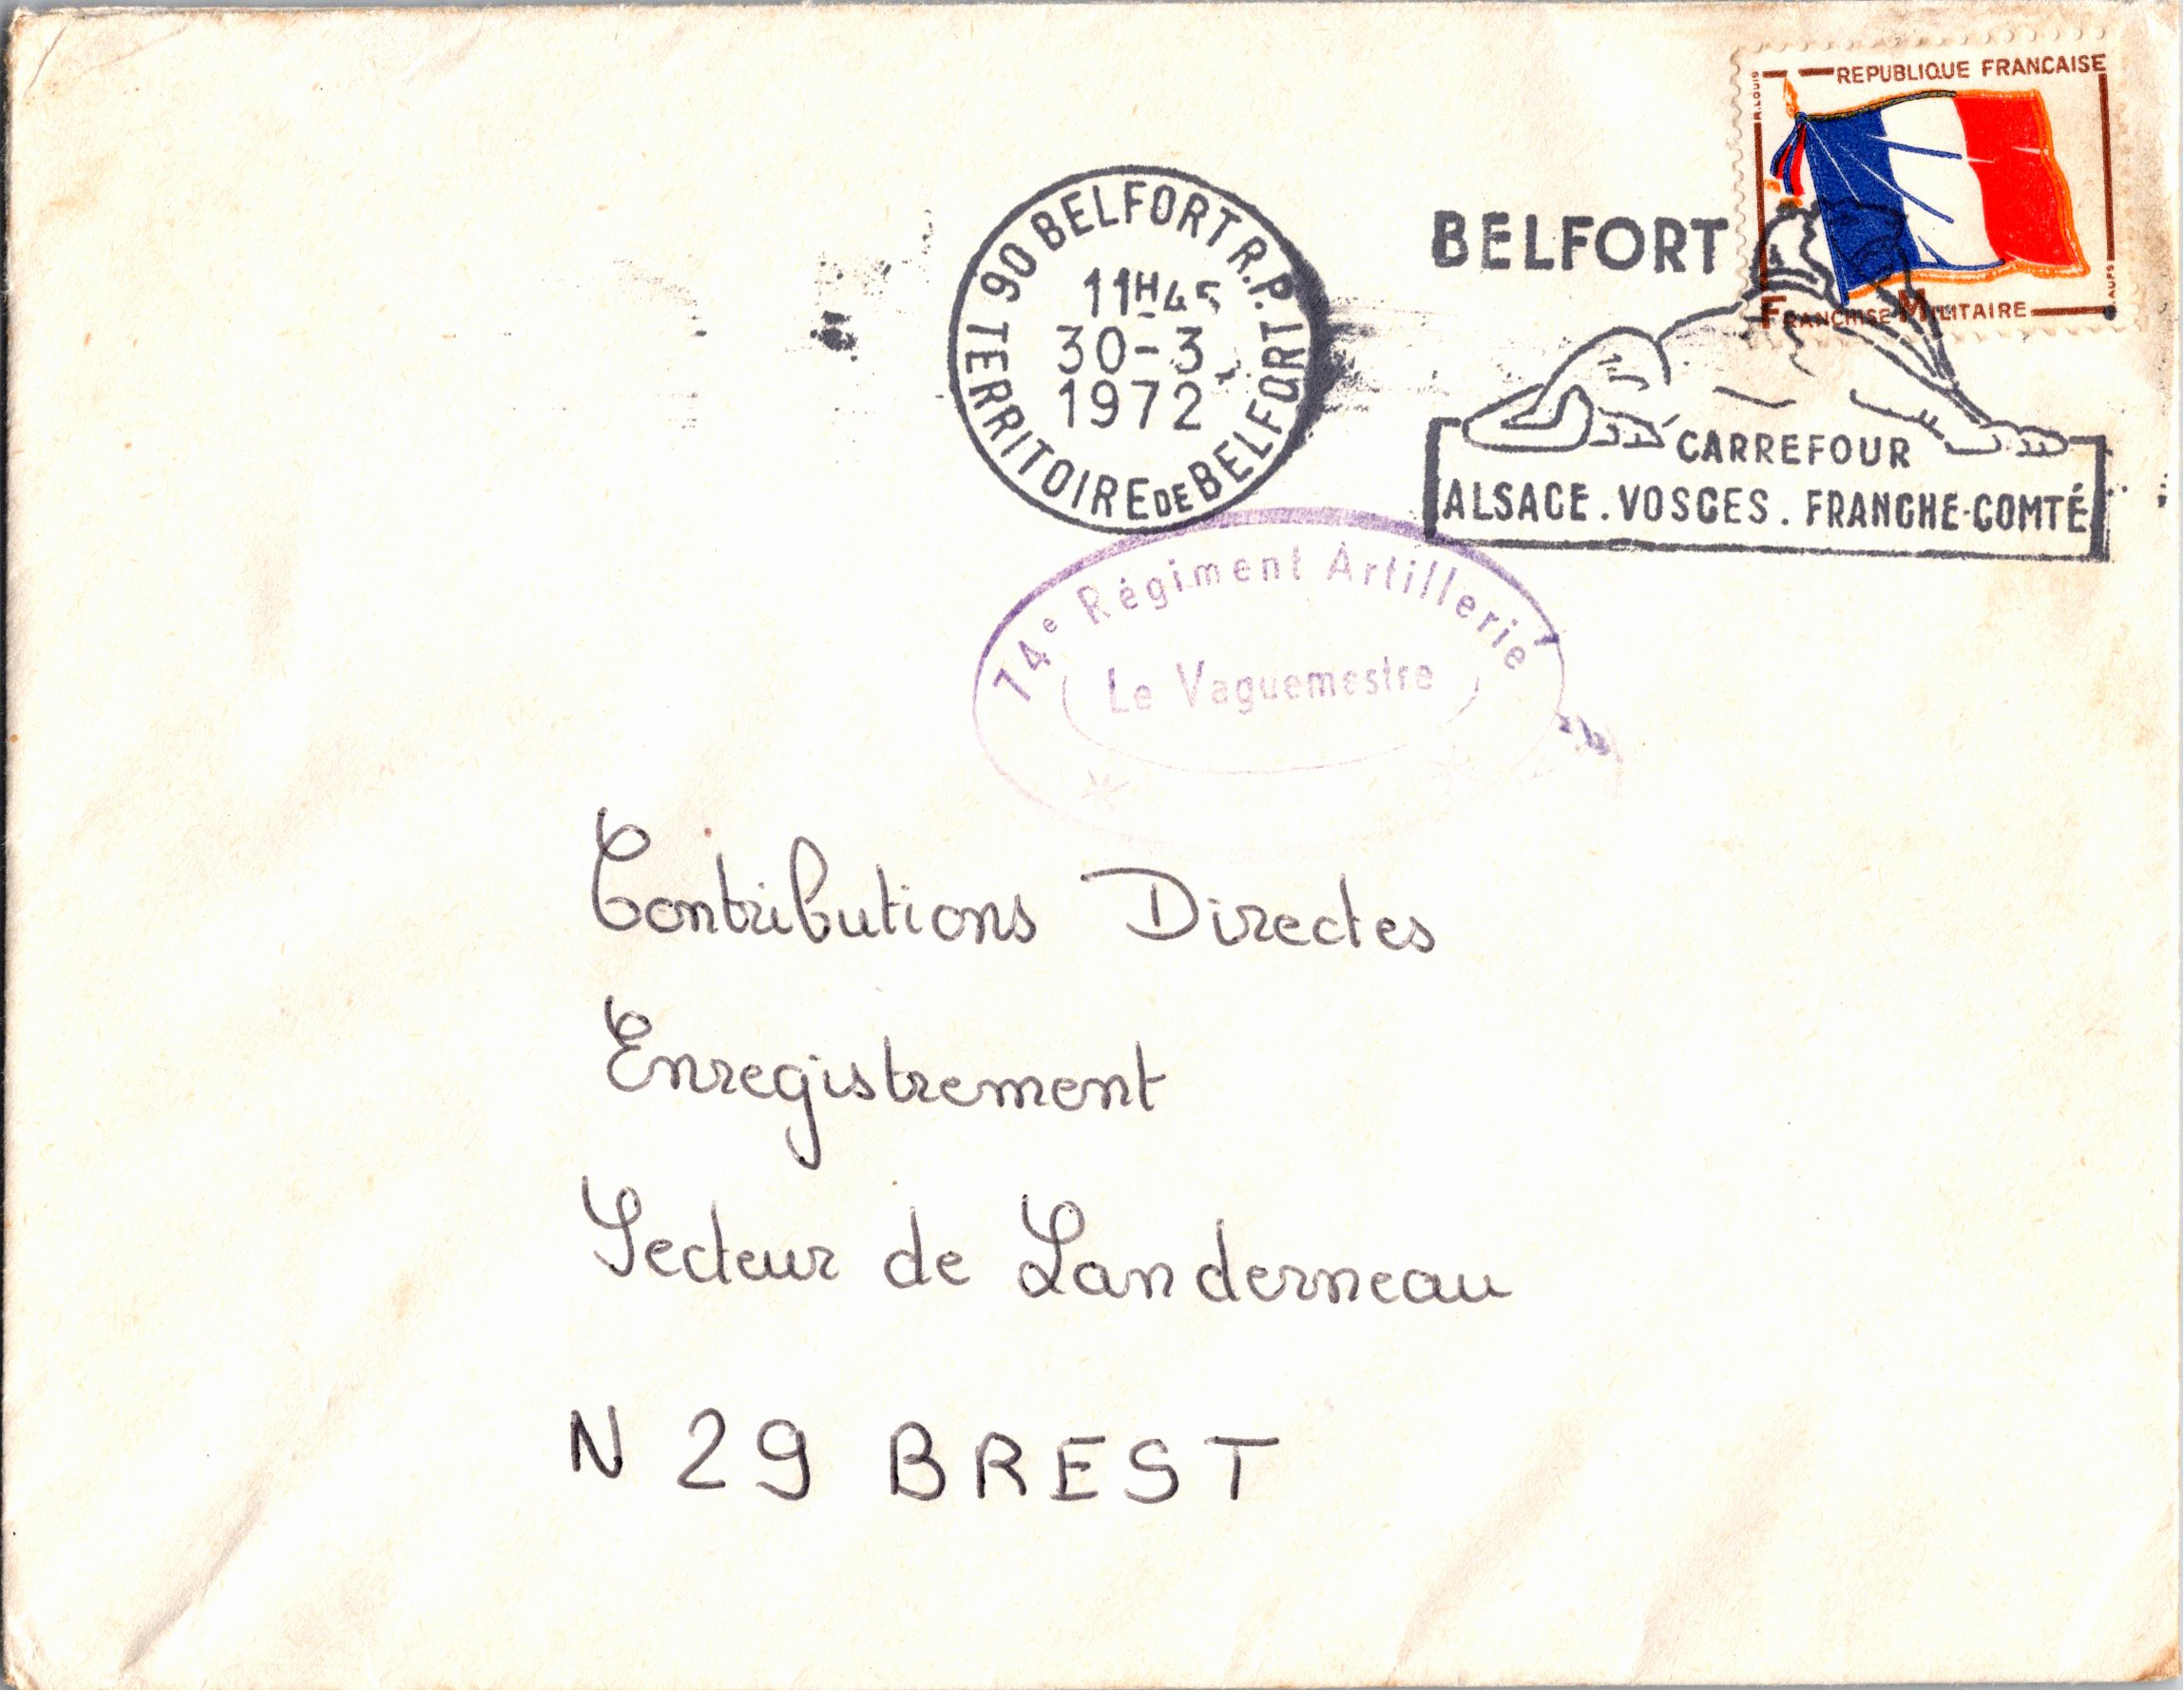 REPUBLIQUE FRANCAISE
R.LOUIS
AUFS
FRANCHISE MILITAIRE
90 BELFORT R.P.
11H45
30-3
1972
TERRITOIRE DE BELFORT
BELFORT
CARREFOUR
ALSACE . VOSGES . FRANCHE-COMTÉ
74e Régiment Artillerie
Le Vaguemestre
Contributions Directes
Enregistrement
Secteur de Landerneau
N 29 BREST